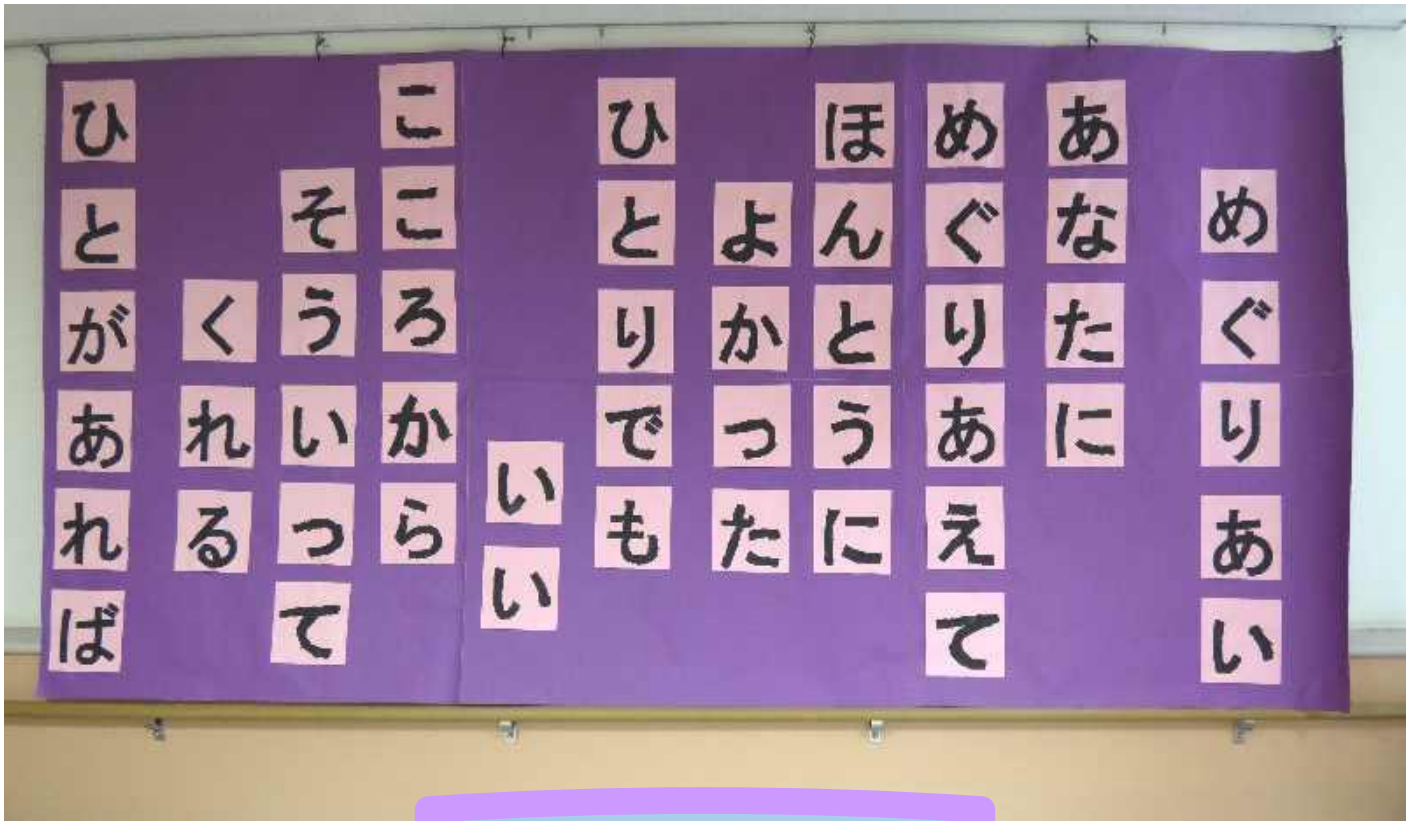 めぐりあい
あなたに
めぐりあえて
ほんとうに
よかった
ひとりでも
いい
こころから
そういって
くれる
ひとがあれば